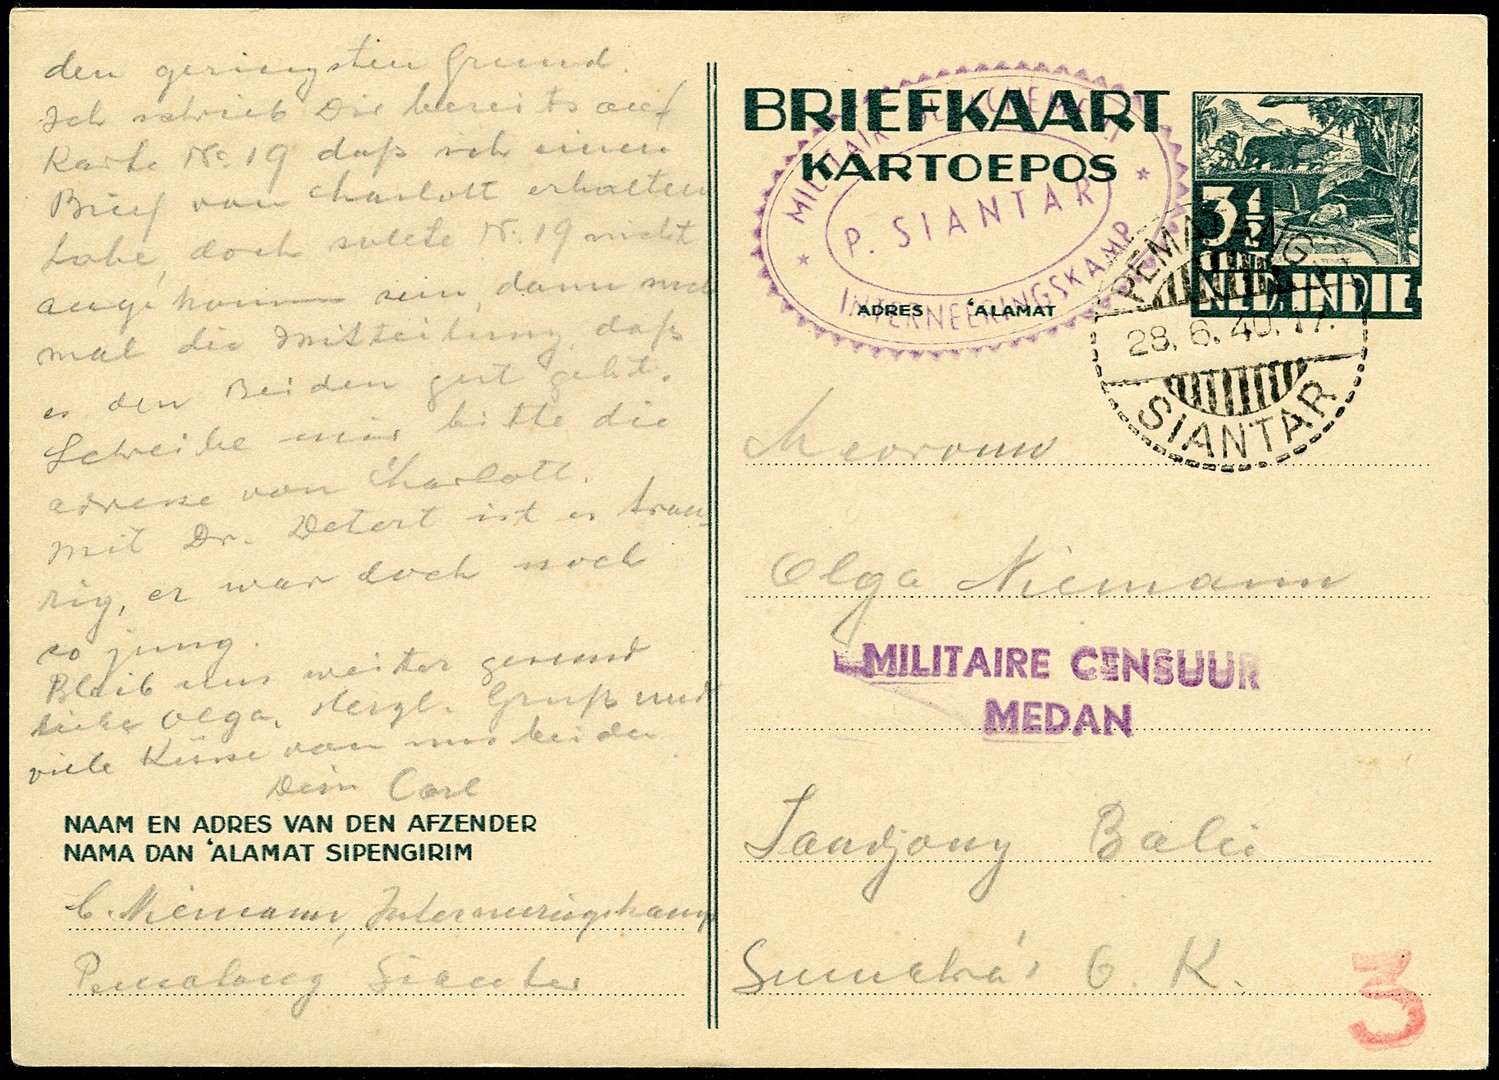 den geringsten Grund.
Ich schrieb Dir bereits auf
Karte No. 19 daß ich einen
Brief von Charlott erhalten
habe, doch sollte N. 19 nicht
angekommen sein, dann noch
mal die Mitteilung, daß
es den Beiden gut geht.
Schreibe mir bitte die
adresse von Charlott.
Mit Dr. Detert ist es trau-
rig, er war doch noch
so jung.
Bleib uns weiter gesund
liebe Olga, Herzl. Gruß und
viele Küsse von uns beiden
Dein Carl
NAAM EN ADRES VAN DEN AFZENDER
NAMA DAN 'ALAMAT SIPENGIRIM
C. Niemann, Interneeringskamp
Pematang Siantar
BRIEFKAART
KARTOEPOS
MILITAIR
P. SIANTAR
INTERNEERINGSKAMP
ADRES 'ALAMAT
3 1/2
CENT
NED. INDIE
PEMATANG
28. 6. 40. 17.
SIANTAR
Mevrouw
Olga Niemann
MILITAIRE CENSUUR
MEDAN
Tandjong Balei
Sumatra's O. K.
3